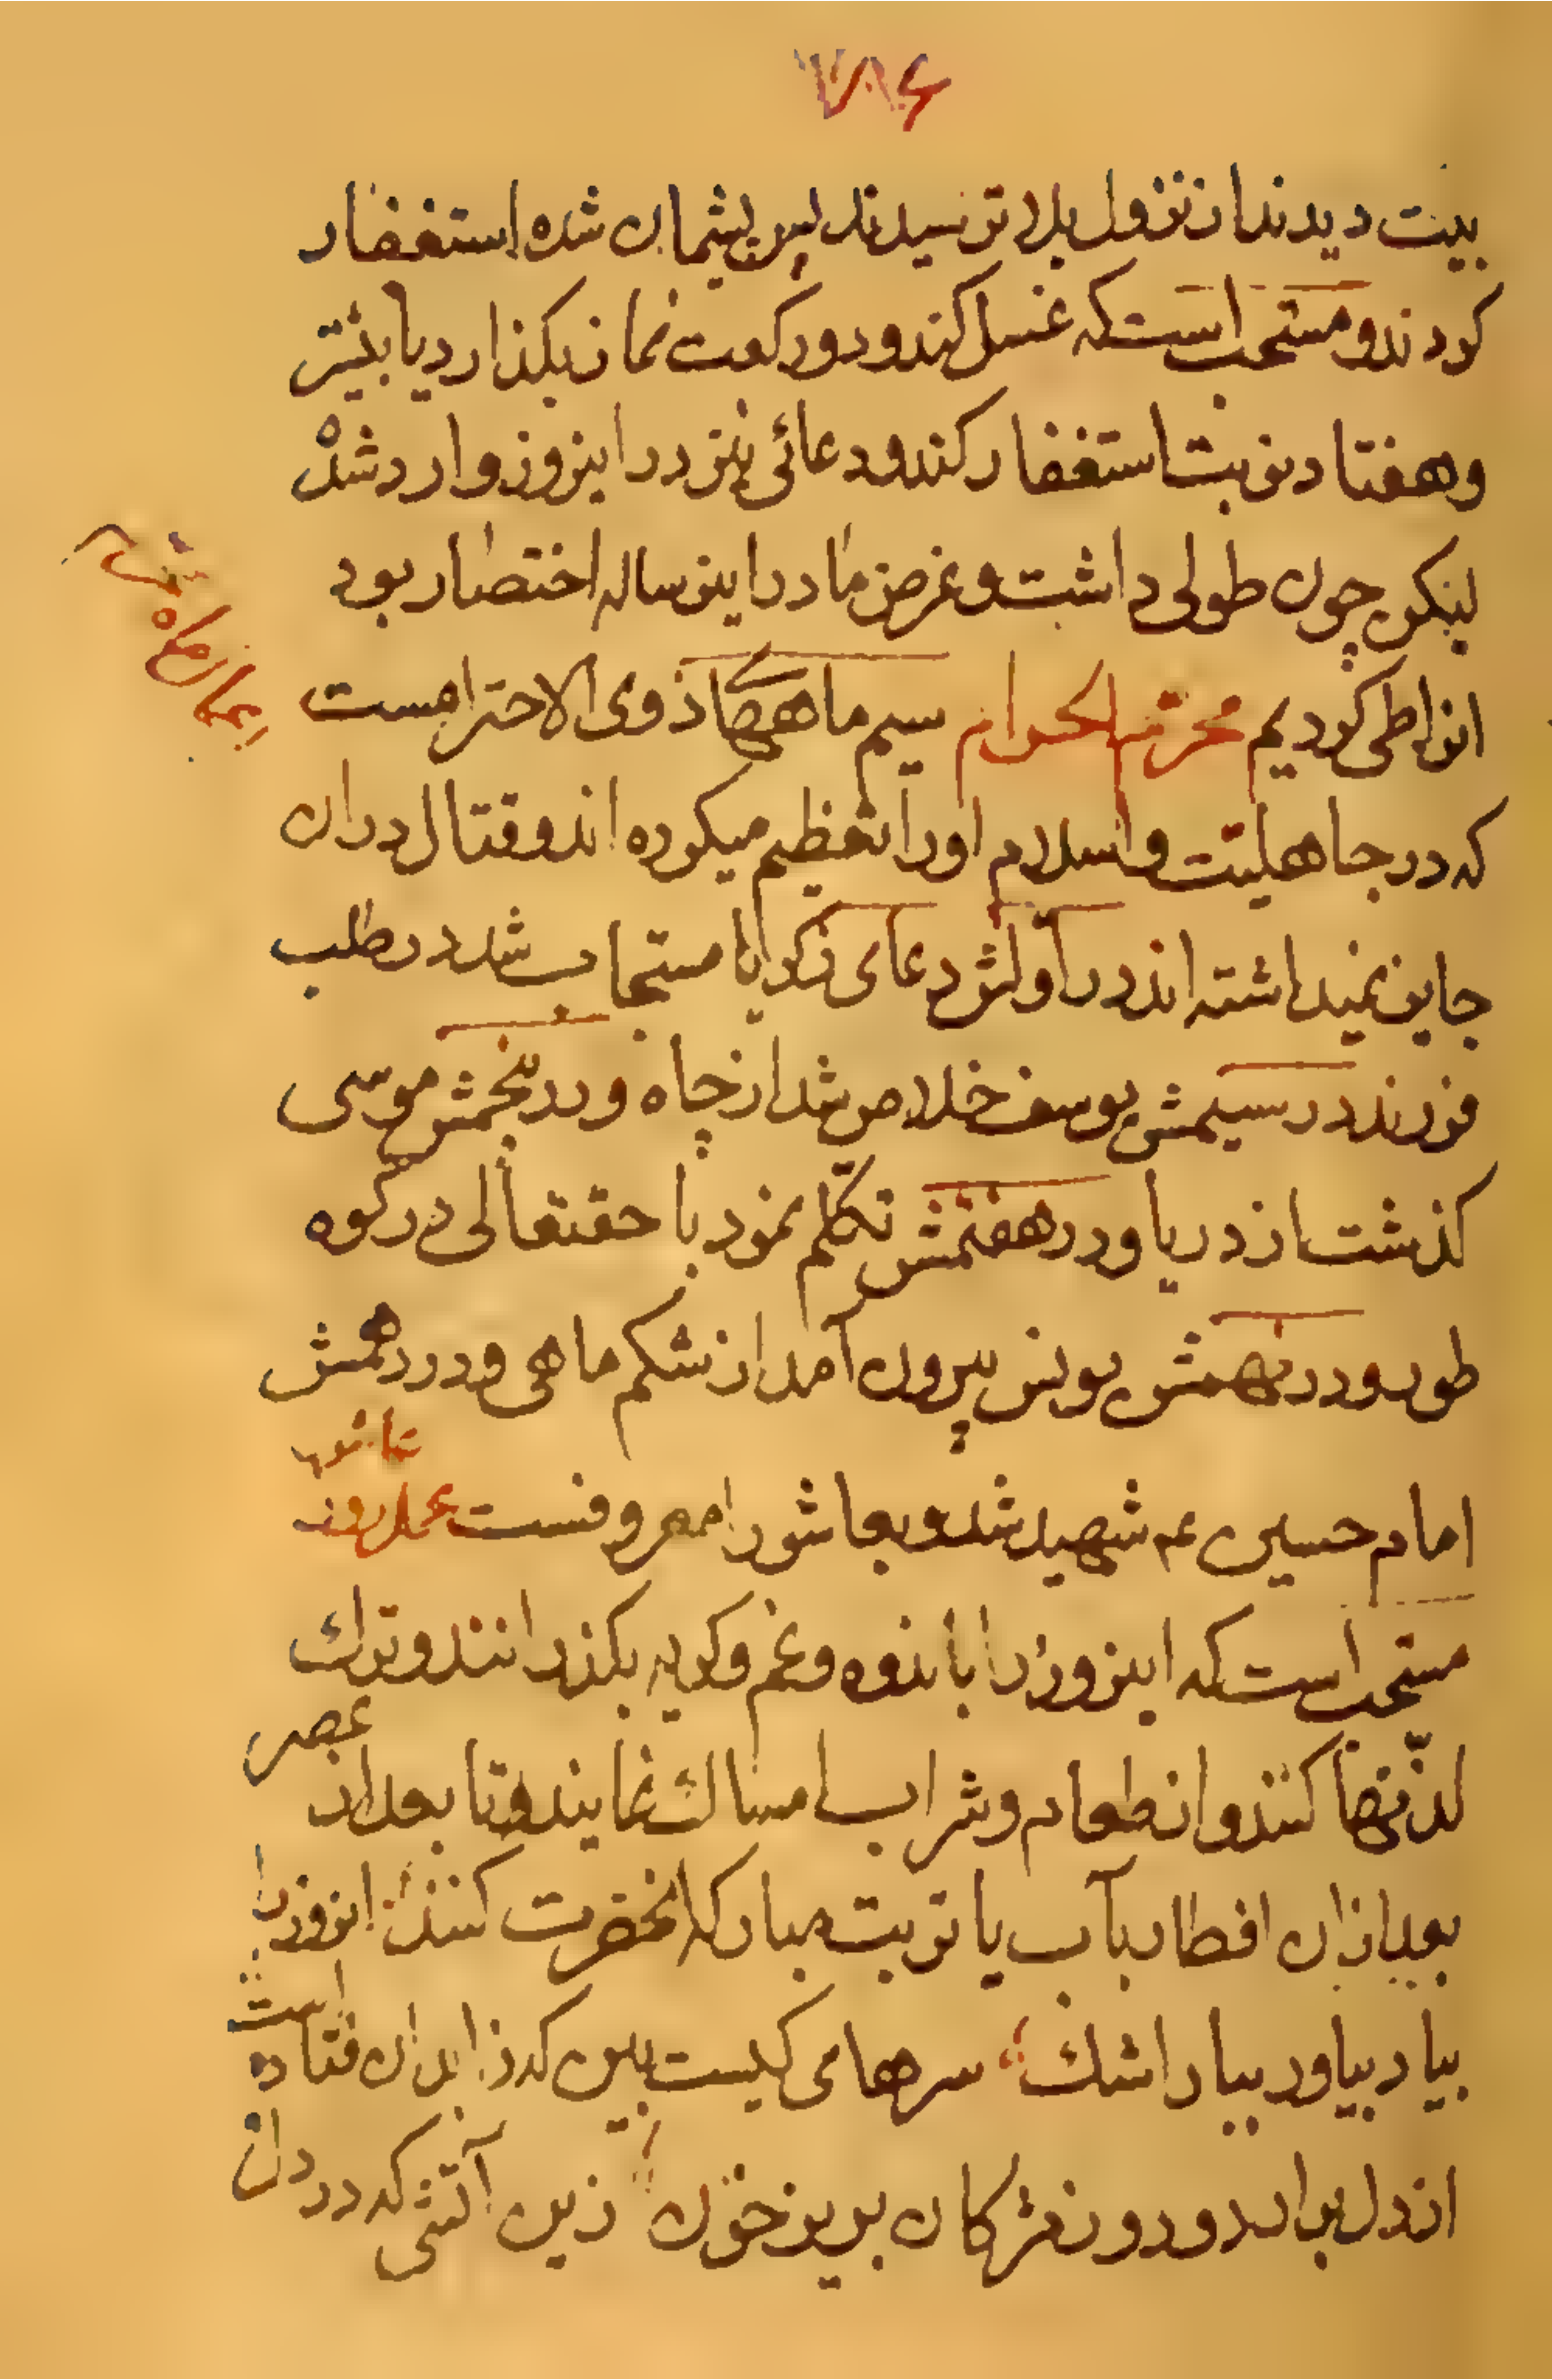 ۷۸۶
بیت دیدند از نزول بلا ترسیدند پس پشیمان شده استغفار
کردند و مستحب است که غسل کند و دو رکعت نماز بکذارد یا بیشتر
و هفتاد نوبت استغفار کند و دعائی نیز در اینروز وارد شده
لیکن چون طولی داشت و غرض ما در اینرساله اختصار بود
انرا طی کردیم محرّم الحرام سیم ماههای ذوی الاحترامست
که در جاهلیّت و اسلام او را تعظیم میکرده اند و قتال در ان
جایز نمیداشته اند در اولش دعای زکریا مستجاب شد در طلب
فرزند در سیمش یوسف خلاص شد از چاه و در پنجمش موسی
کذشت از دریا و در هفتمش تکلّم نمود با حقتعالی در کوه
طور و در نهمش یونس بیرون آمد از شکم ماهی و در دهمش
امام حسین عم شهید شد و بعاشورا معروفست عمل روز
عاشورا
مستحب است که اینروز را باندوه و غم و کریه بکذرانند و ترك
لذّتها کنند و از طعام و شراب امساك نمایند و تا بعد از
عصر
بعد از ان افطار بآب یا تربت مبارکه انحضرت کنند اینروز را
بیاد بیاور ببار اشك سرهای کیست بین که در ان فتاده
است
از دل برار دود و ز مژکان بریز خون زین آتشی که در دل